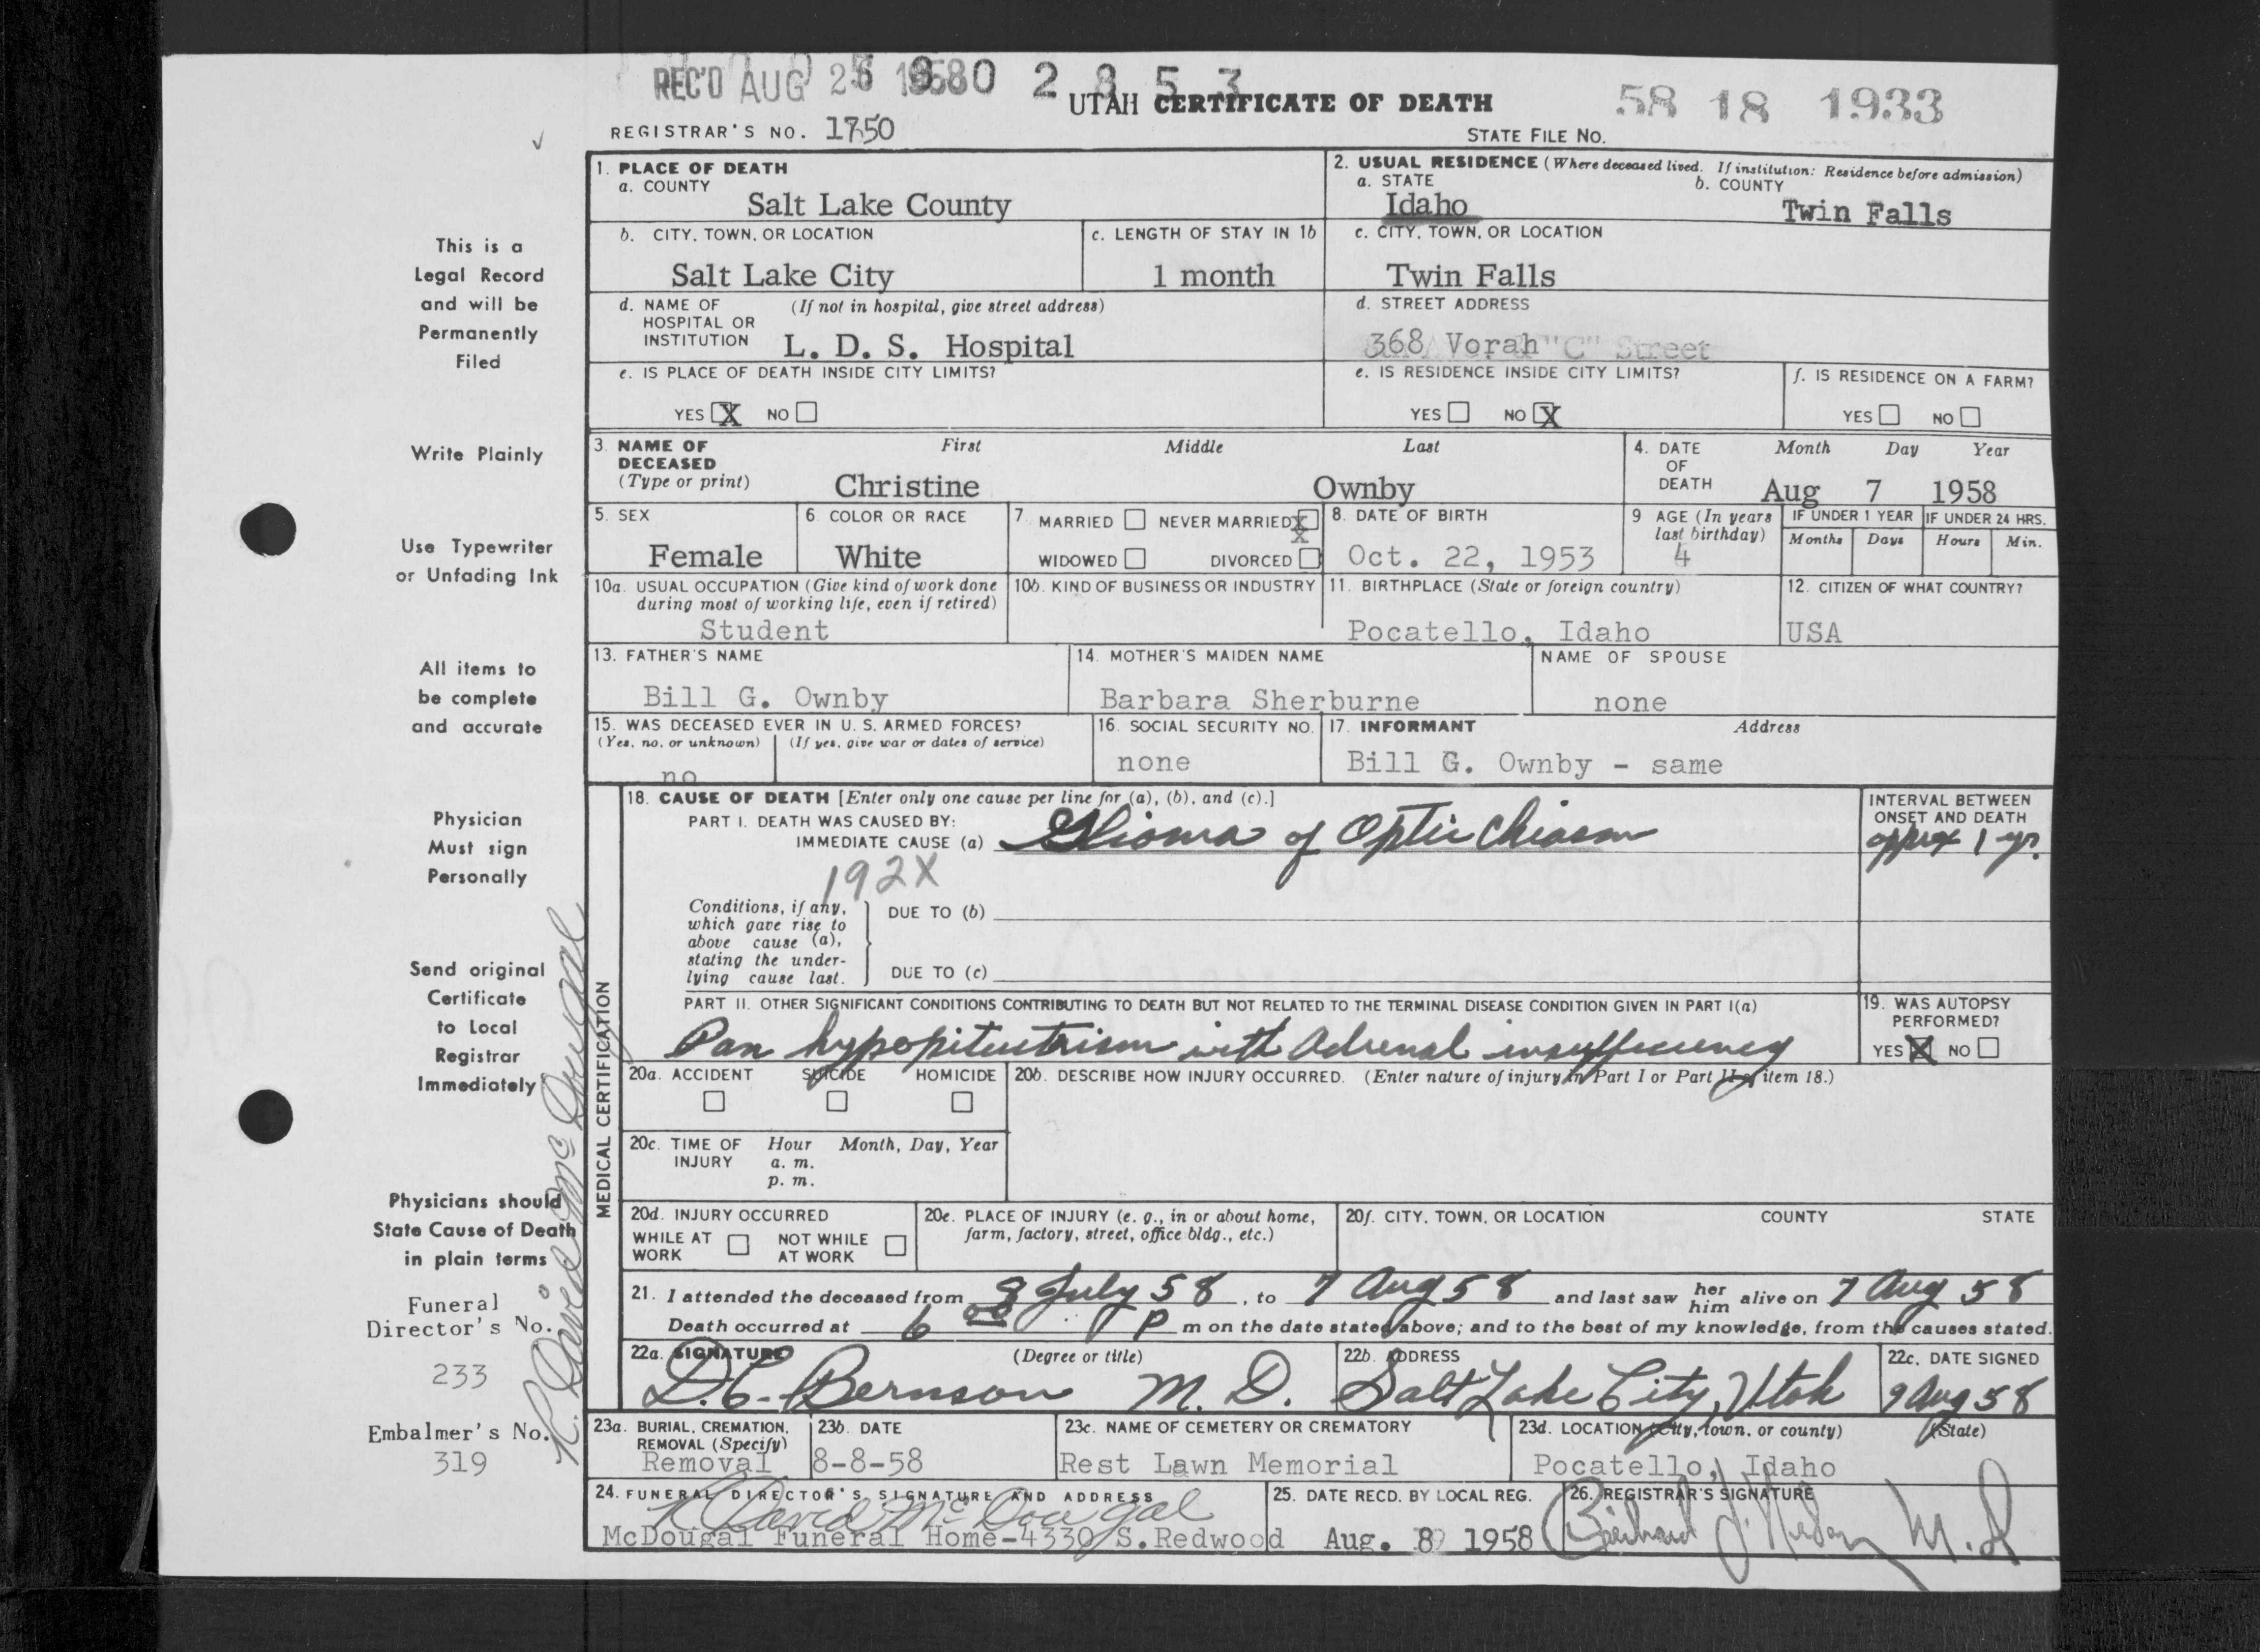 REC'D AUG 25 1958 0 2 8 5 3
UTAH CERTIFICATE OF DEATH
58 18 1933
REGISTRAR'S NO. 1750
STATE FILE NO.
1. PLACE OF DEATH
a. COUNTY
Salt Lake County
2. USUAL RESIDENCE (Where deceased lived. If institution: Residence before admission)
a. STATE
b. COUNTY
Idaho
Twin Falls
b. CITY, TOWN, OR LOCATION
c. LENGTH OF STAY IN 1b
c. CITY, TOWN, OR LOCATION
Salt Lake City
1 month
Twin Falls
d. NAME OF HOSPITAL OR INSTITUTION
(If not in hospital, give street address)
L. D. S. Hospital
d. STREET ADDRESS
368 Vorah "C" Street
e. IS PLACE OF DEATH INSIDE CITY LIMITS?
YES X NO
e. IS RESIDENCE INSIDE CITY LIMITS?
YES NO X
f. IS RESIDENCE ON A FARM?
YES NO
3. NAME OF DECEASED
(Type or print)
First Middle Last
Christine Ownby
4. DATE OF DEATH
Month Day Year
Aug 7 1958
5. SEX
Female
6. COLOR OR RACE
White
7 MARRIED NEVER MARRIED X
WIDOWED DIVORCED
8. DATE OF BIRTH
Oct. 22, 1953
9 AGE (In years last birthday)
4
IF UNDER 1 YEAR
Months Days
IF UNDER 24 HRS.
Hours Min.
10a. USUAL OCCUPATION (Give kind of work done during most of working life, even if retired)
Student
10b. KIND OF BUSINESS OR INDUSTRY
11. BIRTHPLACE (State or foreign country)
Pocatello, Idaho
12. CITIZEN OF WHAT COUNTRY?
USA
13. FATHER'S NAME
Bill G. Ownby
14. MOTHER'S MAIDEN NAME
Barbara Sherburne
NAME OF SPOUSE
none
15. WAS DECEASED EVER IN U. S. ARMED FORCES?
(Yes, no, or unknown) (If yes, give war or dates of service)
no
16. SOCIAL SECURITY NO.
none
17. INFORMANT Address
Bill G. Ownby - same
MEDICAL CERTIFICATION
18. CAUSE OF DEATH [Enter only one cause per line for (a), (b), and (c).]
PART I. DEATH WAS CAUSED BY:
IMMEDIATE CAUSE (a) Glioma of Optic Chiasm
INTERVAL BETWEEN ONSET AND DEATH
approx 1 yr.
192X
Conditions, if any, which gave rise to above cause (a), stating the underlying cause last.
DUE TO (b)
DUE TO (c)
PART II. OTHER SIGNIFICANT CONDITIONS CONTRIBUTING TO DEATH BUT NOT RELATED TO THE TERMINAL DISEASE CONDITION GIVEN IN PART I(a)
Pan hypopituitrism with Adrenal insufficiency
19. WAS AUTOPSY PERFORMED?
YES X NO
20a. ACCIDENT SUICIDE HOMICIDE
20b. DESCRIBE HOW INJURY OCCURRED. (Enter nature of injury in Part I or Part II of item 18.)
20c. TIME OF INJURY
Hour Month, Day, Year
a. m.
p. m.
20d. INJURY OCCURRED
WHILE AT WORK
NOT WHILE AT WORK
20e. PLACE OF INJURY (e. g., in or about home, farm, factory, street, office bldg., etc.)
20f. CITY, TOWN, OR LOCATION COUNTY STATE
21. I attended the deceased from 8 July 58, to 7 Aug 58 and last saw her him alive on 7 Aug 58
Death occurred at 6 00 P m on the date stated above; and to the best of my knowledge, from the causes stated.
22a. SIGNATURE (Degree or title)
D.C. Bernson M. D.
22b. ADDRESS
Salt Lake City, Utah
22c. DATE SIGNED
9 Aug 58
23a. BURIAL, CREMATION, REMOVAL (Specify)
Removal
23b. DATE
8-8-58
23c. NAME OF CEMETERY OR CREMATORY
Rest Lawn Memorial
23d. LOCATION (City, town, or county) (State)
Pocatello, Idaho
24. FUNERAL DIRECTOR'S SIGNATURE AND ADDRESS
R David McDougal
McDougal Funeral Home-4330 S. Redwood
25. DATE RECD. BY LOCAL REG.
Aug. 8 1958
26. REGISTRAR'S SIGNATURE
M.D
This is a
Legal Record
and will be
Permanently
Filed
Write Plainly
Use Typewriter
or Unfading Ink
All items to
be complete
and accurate
Physician
Must sign
Personally
Send original
Certificate
to Local
Registrar
Immediately
Physicians should
State Cause of Death
in plain terms
Funeral
Director's No.
233
Embalmer's No.
319
R. David McDougal